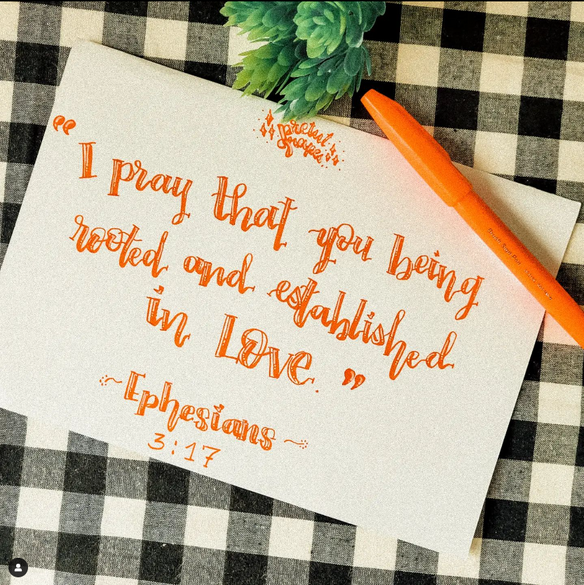 “I pray that you being
rooted and established
in Love.”
~Ephesians~
3:17